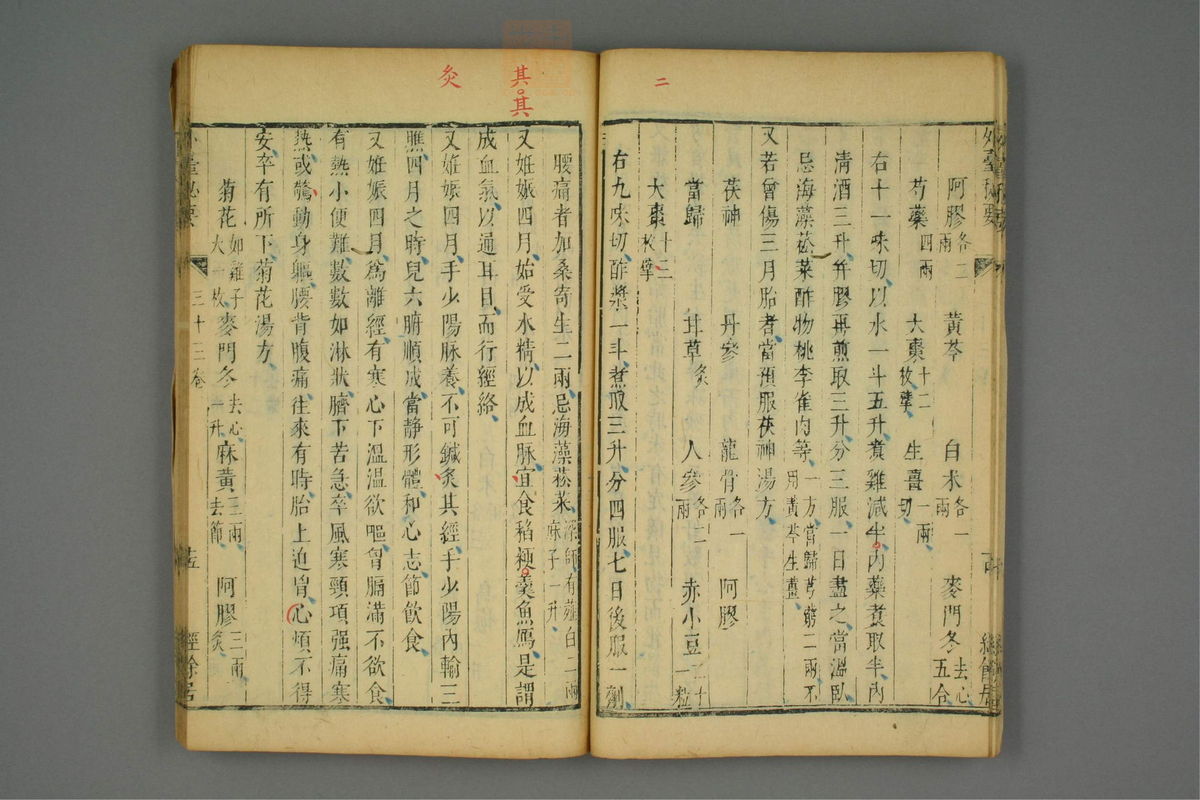 外臺秘要
阿膠各二兩 黃芩 白朮各一兩 麥門冬去心五合
芍藥四兩 大棗十二枚擘 生薑一兩切
右十一味切以水一斗五升煑雞減半內藥煑取半內
清酒三升并膠再煎取三升分三服一日盡之當溫臥
忌海藻菘菜酢物桃李雀肉等一方當歸芎藭二兩不用黃芩生薑
又若曾傷三月胎者當預服茯神湯方
茯神 丹參 龍骨各一兩 阿膠
當歸 甘草炙 人參各二兩 赤小豆二十一粒
大棗十二枚擘
右九味切酢漿一斗煑取三升分四服七日後服一劑
二
其其
灸
腰痛者加桑寄生二兩忌海藻菘菜深師有薤白二兩麻子一升
又妊娠四月始受水精以成血脉宜食稻秔羹魚鴈是謂
成血氣以通耳目而行經絡
又妊娠四月手少陽脉養不可鍼灸其經手少陽內輸三
膲四月之時兒六腑順成當静形體和心志節飲食
又妊娠四月為離經有寒心下溫溫欲嘔胷膈滿不欲食
有熱小便難數數如淋狀臍下苦急卒風寒頸項强痛寒
熱或驚動身軀腰背腹痛往來有時胎上迫胷心煩不得
安卒有所下菊花湯方
菊花如雞子大一枚 麥門冬去心一升 麻黃三兩去節 阿膠三兩炙
外臺秘要 三十三卷 十五 經餘居